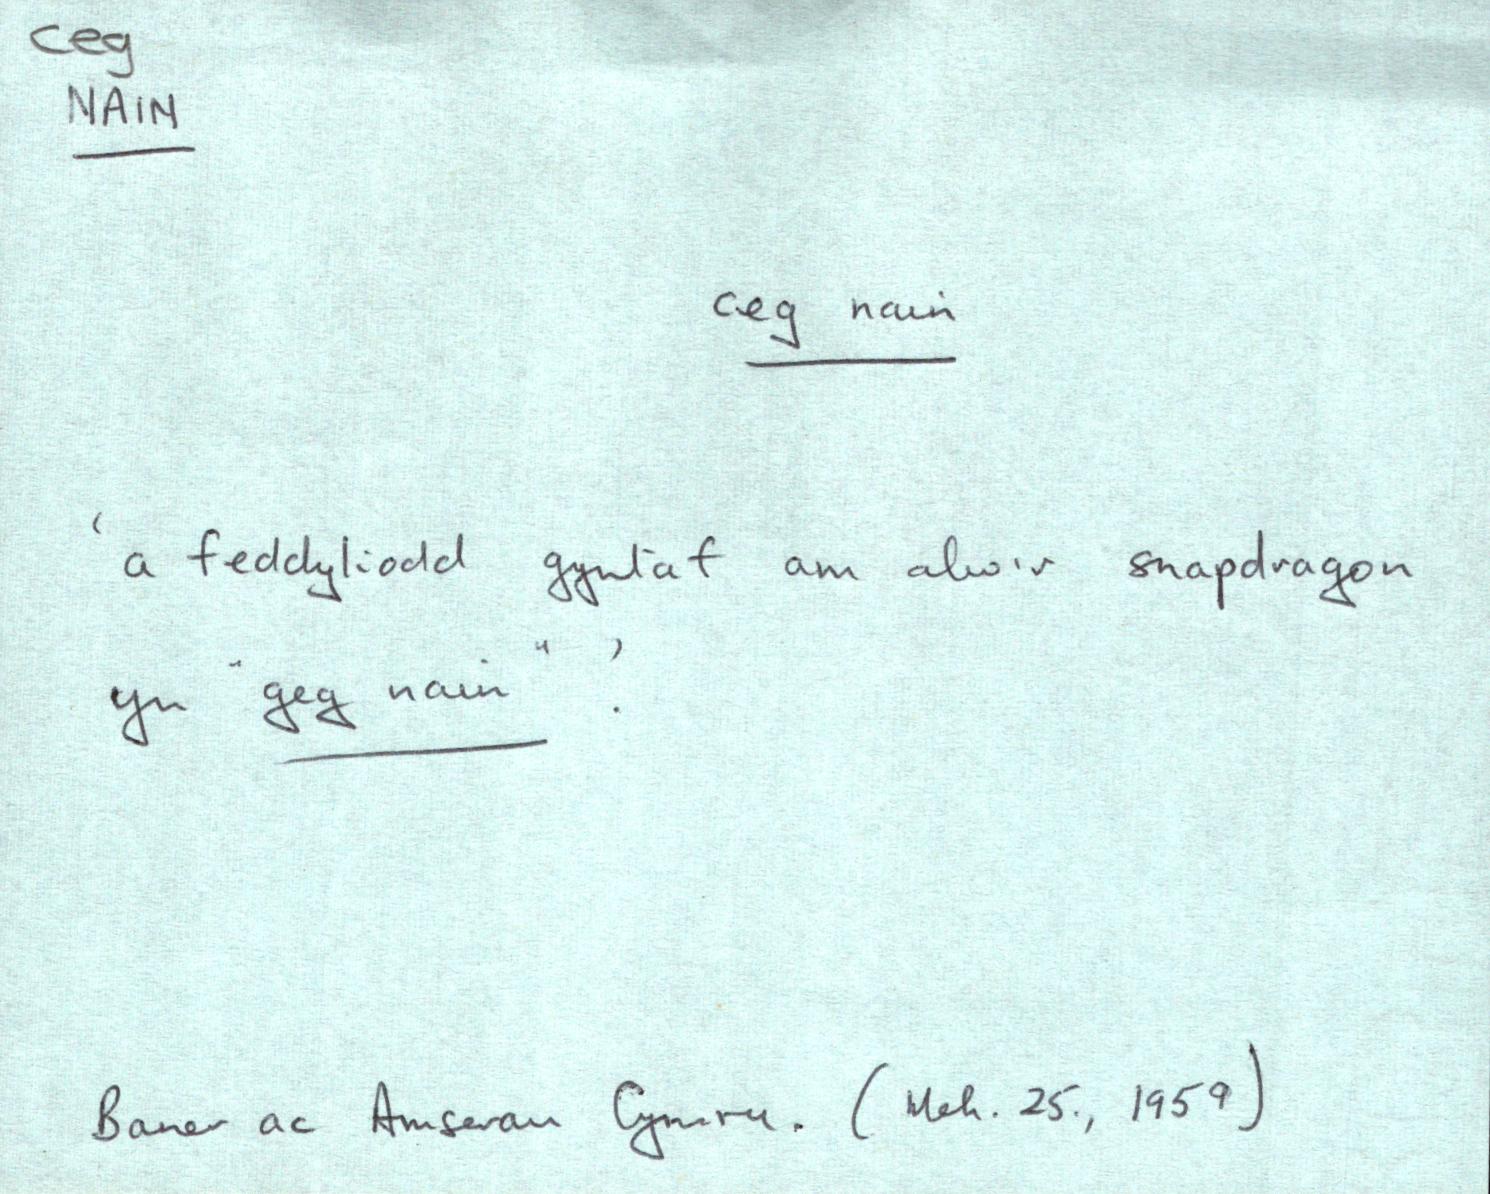 ceg
NAIN
ceg nain
'a feddyliodd gyntaf am alw'r snapdragon
yn "geg nain" ?'
Baner ac Amserau Cymru. (Meh. 25., 1959)